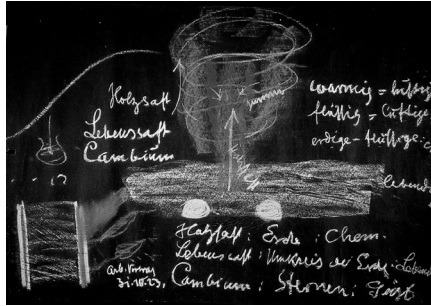 Holzsaft
Lebenssaft
Cambium
warmig = luftig
flüssig = luftige
erdige - flüssige
Holzsaft
lebend
Holzsaft : Erde : Chem.
Lebenssaft : Umkreis der Erde : Leben
Cambium : Sternen : Geist
Arb. Vortrag
31.10.23,